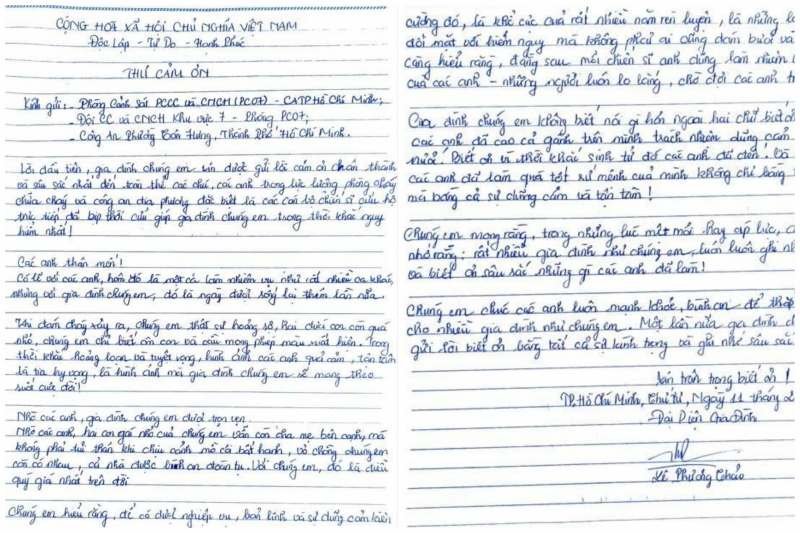 CỘNG HOÀ XÃ HỘI CHỦ NGHĨA VIỆT NAM
Độc Lập - Tự Do - Hạnh Phúc
THƯ CẢM ƠN
Kính gửi: - Phòng Cảnh sát PCCC và CNCH (PC07) - CATP Hồ Chí Minh;
- Đội CC và CNCH Khu vực 7 - Phòng PC07;
- Công An Phường Tân Hưng, Thành Phố Hồ Chí Minh.
Lời đầu tiên, gia đình chúng em xin được gửi lời cảm ơn chân thành
và sâu sắc nhất đến toàn thể các chú, các anh trong lực lượng phòng cháy
chữa cháy và công an địa phương đặc biệt là các cán bộ chiến sĩ cứu hộ
trực tiếp đã kịp thời cứu giúp gia đình chúng em trong thời khắc nguy
hiểm nhất!
Các anh thân mến!
Có lẽ với các anh, hôm đó là một ca làm nhiệm vụ như rất nhiều ca khác,
nhưng với gia đình chúng em, đó là ngày được sống lại thêm lần nữa.
Khi đám cháy xảy ra, chúng em thật sự hoảng sợ, hai đứa con còn quá
nhỏ, chúng em chỉ biết ôm con và cầu mong phép màu xuất hiện. Trong
thời khắc hoảng loạn và tuyệt vọng, hình ảnh các anh quả cảm, tận tâm
là tia hy vọng, là hình ảnh mà gia đình chúng em sẽ mang theo
suốt cuộc đời!
Nhờ các anh, gia đình chúng em được trọn vẹn
Nhờ các anh, hai con gái nhỏ của chúng em vẫn còn cha mẹ bên cạnh, mà
không phải tủi thân khi chịu cảnh mồ côi bất hạnh, vợ chồng chúng em
còn có nhau, cả nhà được bình an đoàn tụ. Với chúng em, đó là điều
quý giá nhất trên đời
Chúng em hiểu rằng, để có được nghiệp vụ, bản lĩnh và sự dũng cảm kiên
cường đó, là khổ cực của rất nhiều năm rèn luyện, là những l
đối mặt với hiểm nguy mà không phải ai cũng dám bước và
càng hiểu rằng, đằng sau mỗi chiến sĩ anh dũng làm nhiệm
của các anh - những người luôn lo lắng, chờ đợi các anh tr
Gia đình chúng em không biết nói gì hơn ngoài hai chữ biết ơn
các anh đã cao cả gánh trên mình trách nhiệm dũng cảm
Biết ơn vì thời khắc sinh tử đó các anh đã đến! Và
các anh đã làm quá tốt sứ mệnh của mình không chỉ bằng
mà bằng cả sự dũng cảm và tận tâm!
Chúng em mong rằng, trong những lúc mệt mỏi hay áp lực, c
nhớ rằng: rất nhiều gia đình như chúng em, luôn luôn ghi n
và biết ơn sâu sắc những gì các anh đã làm!
Chúng em chúc các anh luôn mạnh khoẻ, bình an để thắp
cho nhiều gia đình như chúng em. Một lần nữa gia đình ch
gửi lời biết ơn bằng tất cả sự kính trọng và ghi nhớ sâu sắc
Trân trọng biết ơn!
TP. Hồ Chí Minh, Thứ tư, Ngày 11 tháng 2
Đại Diện Gia Đình
Lê Phương Thảo